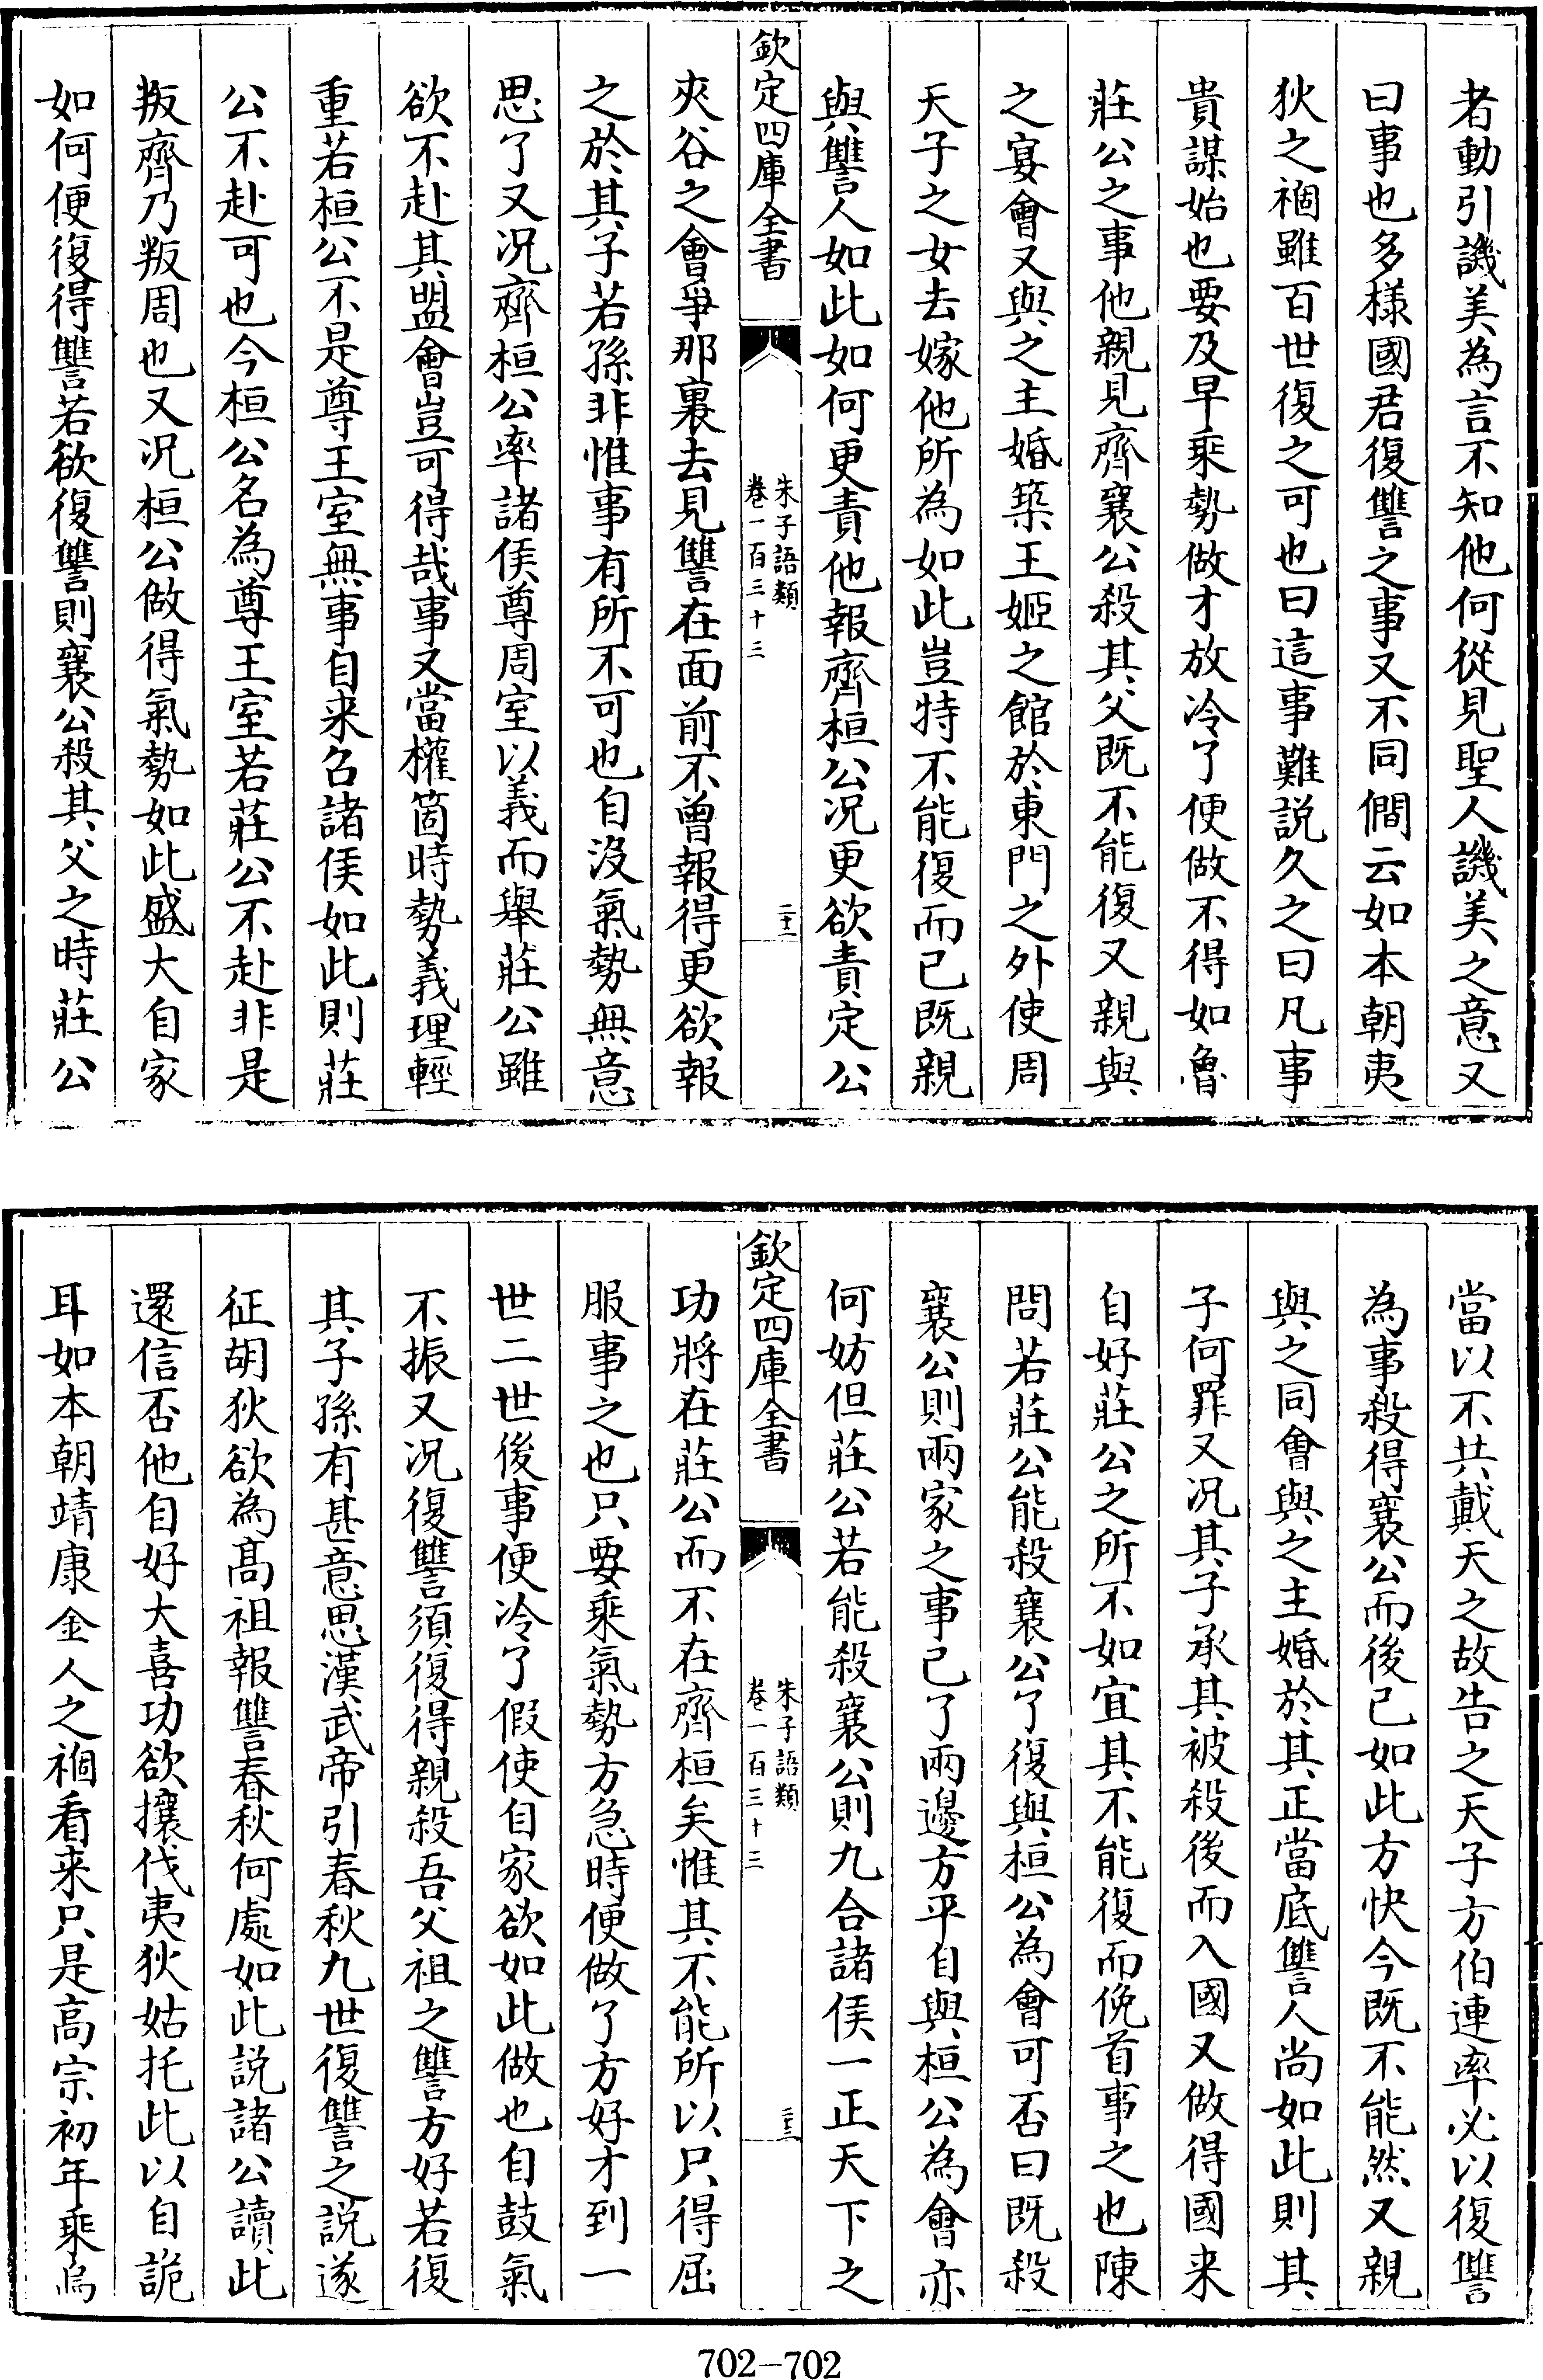 者動引譏美為言不知他何從見聖人譏美之意又
曰事也多様國君復讐之事又不同僩云如本朝夷
狄之禍雖百世復之可也曰這事難説久之曰凡事
貴謀始也要及早乘勢做才放冷了便做不得如魯
莊公之事他親見齊襄公殺其父既不能復又親與
之宴會又與之主婚築王姬之館於東門之外使周
天子之女去嫁他所為如此豈特不能復而已既親
與讐人如此如何更責他報齊桓公况更欲責定公
欽定四庫全書
朱子語類
卷一百三十三
二十二
夾谷之會爭那裏去見讐在面前不曾報得更欲報
之於其子若孫非惟事有所不可也自沒氣勢無意
思了又况齊桓公率諸侯尊周室以義而舉莊公雖
欲不赴其盟會豈可得哉事又當權箇時勢義理輕
重若桓公不是尊王室無事自来召諸侯如此則莊
公不赴可也今桓公名為尊王室若莊公不赴非是
叛齊乃叛周也又况桓公做得氣勢如此盛大自家
如何便復得讐若欲復讐則襄公殺其父之時莊公
當以不共戴天之故告之天子方伯連率必以復讐
為事殺得襄公而後已如此方快今既不能然又親
與之同會與之主婚於其正當底讐人尚如此則其
子何罪又况其子承其被殺後而入國又做得國来
自好莊公之所不如宜其不能復而俛首事之也陳
問若莊公能殺襄公了復與桓公為會可否曰既殺
襄公則兩家之事已了兩邊方平自與桓公為會亦
何妨但莊公若能殺襄公則九合諸侯一正天下之
欽定四庫全書
朱子語類
卷一百三十三
二十三
功將在莊公而不在齊桓矣惟其不能所以只得屈
服事之也只要乘氣勢方急時便做了方好才到一
世二世後事便冷了假使自家欲如此做也自鼓氣
不振又况復讐須復得親殺吾父祖之讐方好若復
其子孫有甚意思漢武帝引春秋九世復讐之説遂
征胡狄欲為髙祖報讐春秋何處如此説諸公讀此
還信否他自好大喜功欲攘伐夷狄姑托此以自詭
耳如本朝靖康金人之禍看来只是高宗初年乘烏
702—702